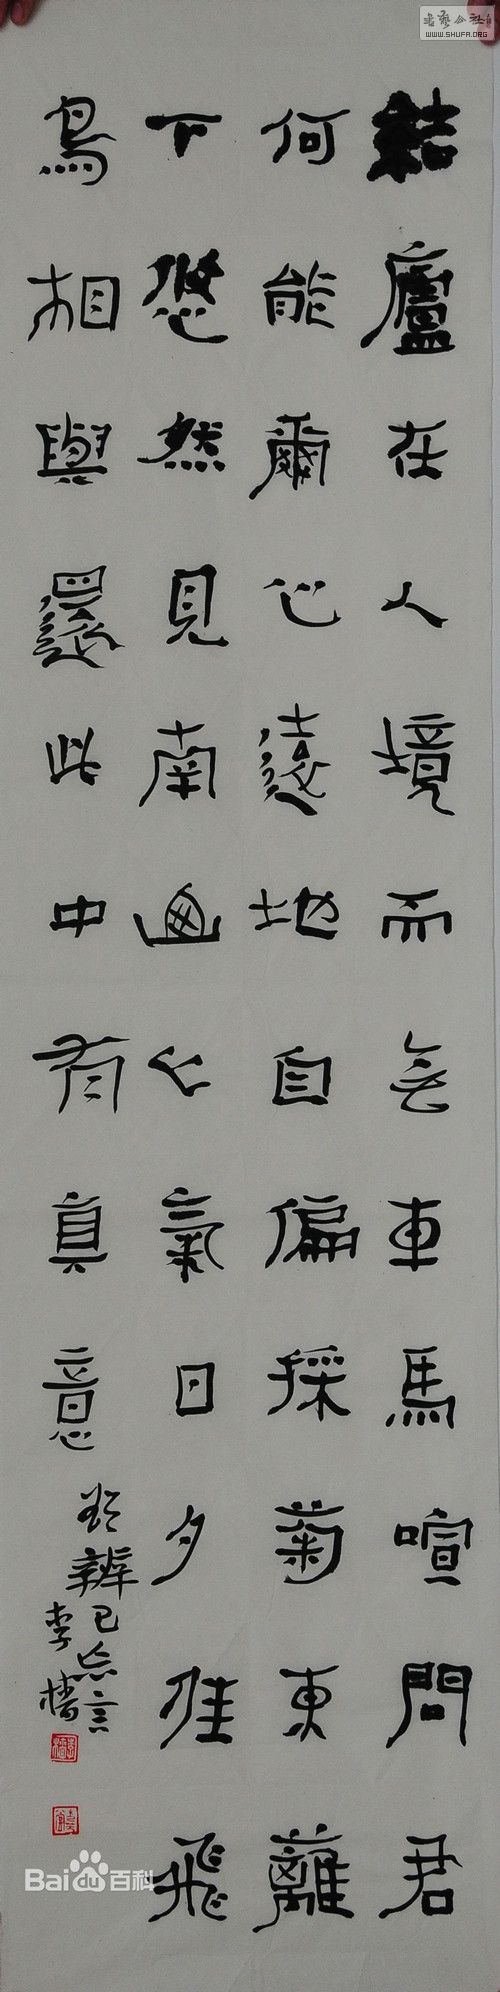 書藝公社
WWW.SHUFA.ORG
結廬在人境而无車馬喧問君
何能爾心遠地自偏採菊東蘺
下悠然見南山々氣日夕佳飛
鳥相與還此中有真意欲辨已忘言
李樯
Baidu百科